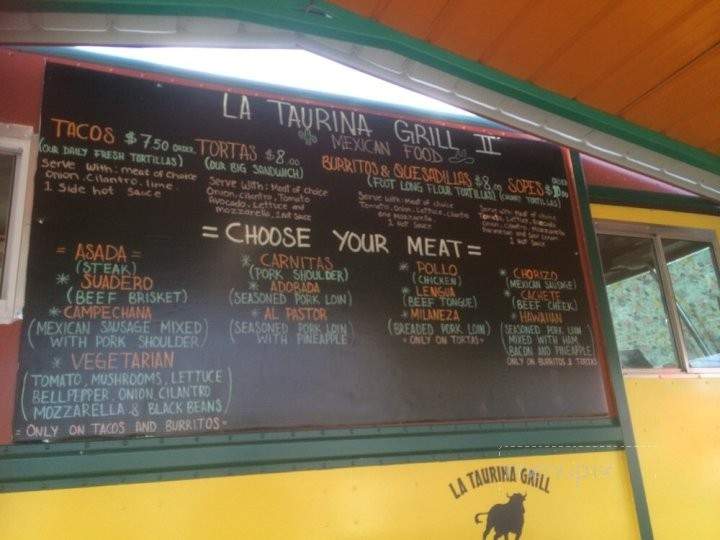 LA TAURINA GRILL II
MEXICAN FOOD
TACOS $7.50 ORDER
(OUR DAILY FRESH TORTILLAS)
Serve with: meat of choice
Onion, Cilantro, lime.
1 Side hot Sauce
TORTAS $8.00
(OUR BIG SANDWICH)
Serve with: Meat of choice
Onion, cilantro, Tomato
Avocado, Lettuce and
mozzarella, 1 Hot Sauce
BURRITOS & QUESADILLAS $8.00
(FOOT LONG FLOUR TORTILLAS)
Serve with: meat of choice
Tomato, Onion, Lettuce, cilantro
and mozzarella
1 Hot Sauce
SOPES $10.00 ORDER
TORTILLAS)
Serve with: meat of choice
Tomato, Lettuce, Avocado
Onion, cilantro, mozzarella
Parmesan and Sour Cream
1 Hot Sauce
= CHOOSE YOUR MEAT =
= ASADA =
(STEAK)
* SUADERO
(BEEF BRISKET)
* CAMPECHANA
(MEXICAN SAUSAGE MIXED)
WITH PORK SHOULDER
* VEGETARIAN
(TOMATO, MUSHROOMS, LETTUCE
BELLPEPPER, ONION, CILANTRO
MOZZARELLA & BLACK BEANS)
= ONLY ON TACOS AND BURRITOS =
* CARNITAS
(PORK SHOULDER)
* ADOBADA
(SEASONED PORK LOIN)
* AL PASTOR
(SEASONED PORK LOIN
WITH PINEAPPLE)
* POLLO
(CHICKEN)
* LENGUA
(BEEF TONGUE)
* MILANEZA
(BREADED PORK LOIN)
* ONLY ON TORTAS *
* CHORIZO
(MEXICAN SAUSAGE)
* CACHETE
(BEEF CHEEK)
* HAWAIIAN
(SEASONED PORK LOIN
MIXED WITH HAM,
BACON AND PINEAPPLE)
ONLY ON BURRITOS & TORTAS
LA TAURINA GRILL